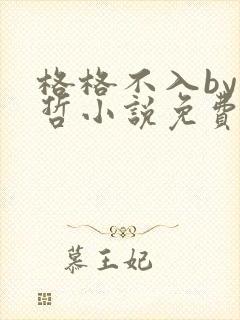 格格不入by
哲小說免費
慕王妃